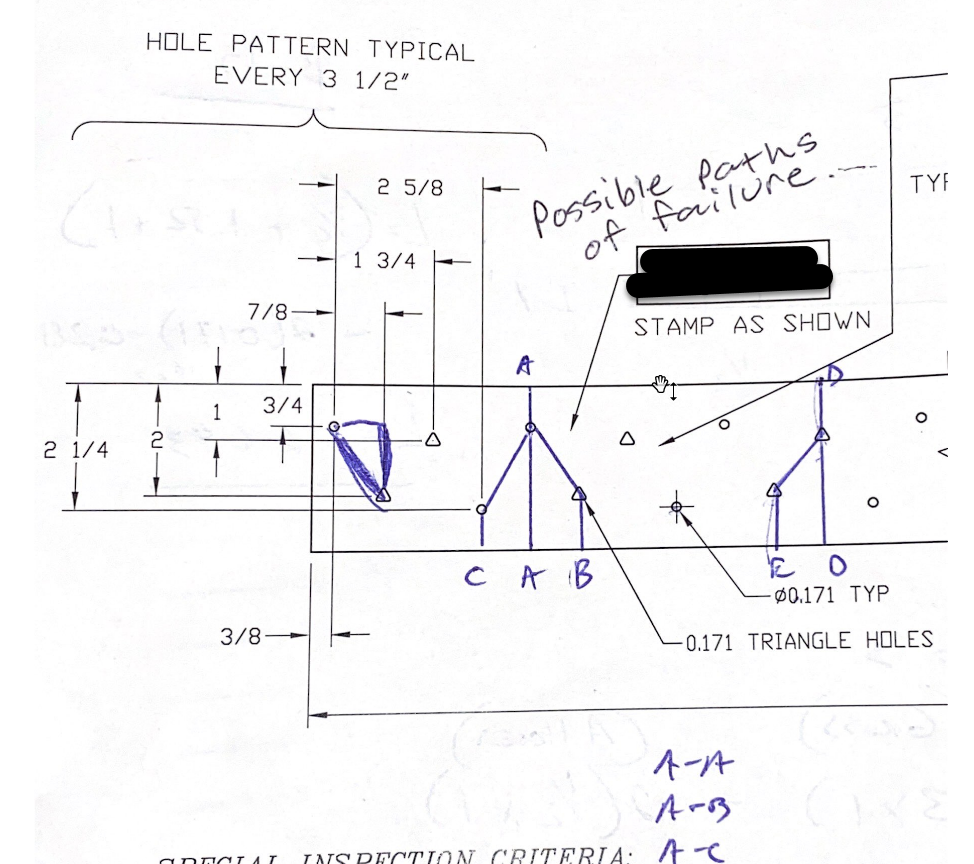 HOLE PATTERN TYPICAL
EVERY 3 1/2"
2 5/8
Possible paths
of failure
TYP
1 3/4
7/8
STAMP AS SHOWN
A
D
1
3/4
2 1/4
2
C A B
E D
Ø0.171 TYP
3/8
0.171 TRIANGLE HOLES
A-A
A-B
A-C
SPECIAL INSPECTION CRITERIA: